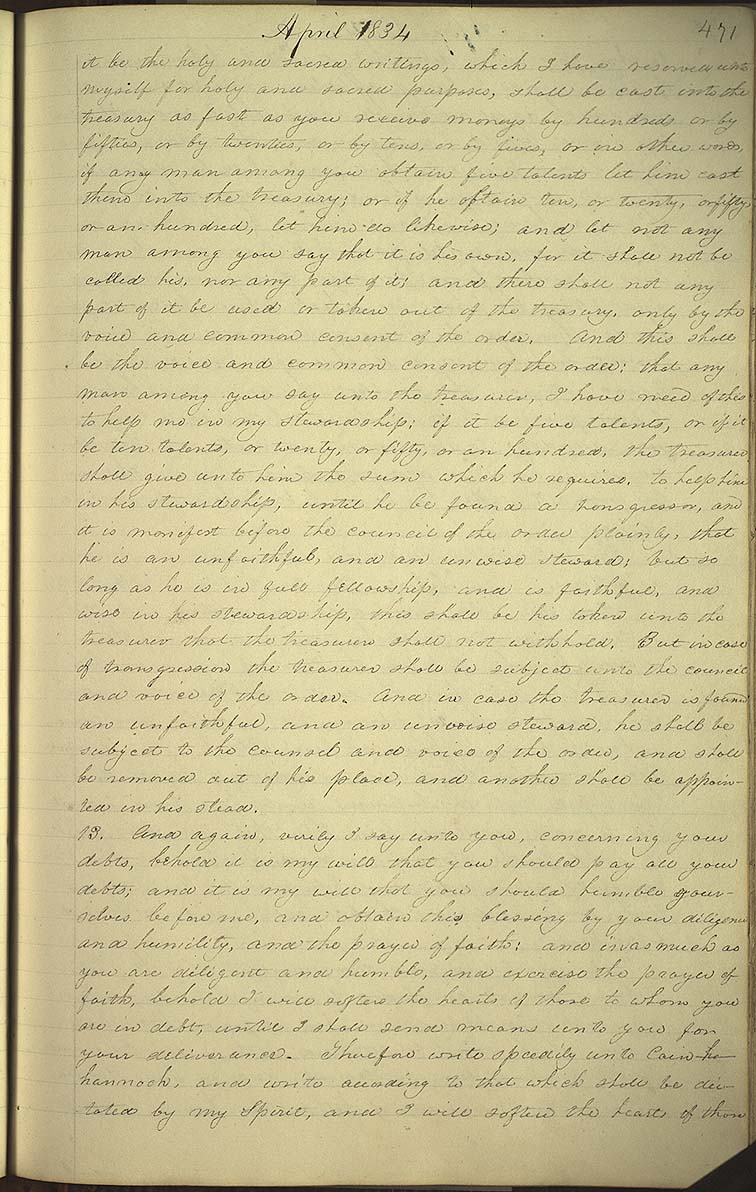 April 1834
471
it be the holy and sacred writings, which I have reserved unto
myself for holy and sacred purposes, shall be cast into the
treasury as fast as you receive moneys by hundreds or by
fifties, or by twenties, or by tens, or by fives, or in other words,
if any man among you obtain five talents let him cast
them into the treasury; or if he obtain ten, or twenty, or fifty,
or an hundred, let him do likewise; and let not any
man among you say that it is his own, for it shall not be
called his, nor any part of it; and there shall not any
part of it be used or taken out of the treasury, only by the
voice and common consent of the order. And this shall
be the voice and common consent of the order: that any
man among you say unto the treasurer, I have need of this
to help me in my stewardship; if it be five talents, or if it
be ten talents, or twenty, or fifty, or an hundred, the treasurer
shall give unto him the sum which he requires, to help him
in his stewardship, until he be found a transgressor, and
it is manifest before the council of the order plainly, that
he is an unfaithful, and an unwise steward; but so
long as he is in full fellowship, and is faithful, and
wise in his stewardship, this shall be his token unto the
treasurer that the treasurer shall not withhold. But in case
of transgression the treasurer shall be subject unto the council
and voice of the order. And in case the treasurer is found
an unfaithful, and an unwise steward, he shall be
subject to the counsel and voice of the order, and shall
be removed out of his place, and another shall be appoin-
ted in his stead.
13. And again, verily I say unto you, concerning your
debts, behold it is my will that you should pay all your
debts; and it is my will that you should humble your-
selves before me, and obtain this blessing by your diligence
and humility, and the prayer of faith: and inasmuch as
you are diligent and humble, and exercise the prayer of
faith, behold I will soften the hearts of those to whom you
are in debt, until I shall send means unto you for
your deliverance. Therefore write speedily unto Cain ha
hannoch, and write according to that which shall be dic-
tated by my Spirit, and I will soften the hearts of those